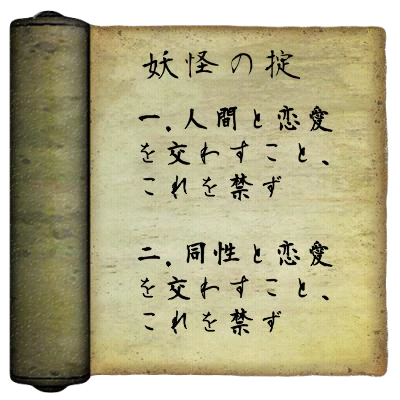 妖怪の掟
一．人間と恋愛
を交わすこと、
これを禁ず
二．同性と恋愛
を交わすこと、
これを禁ず